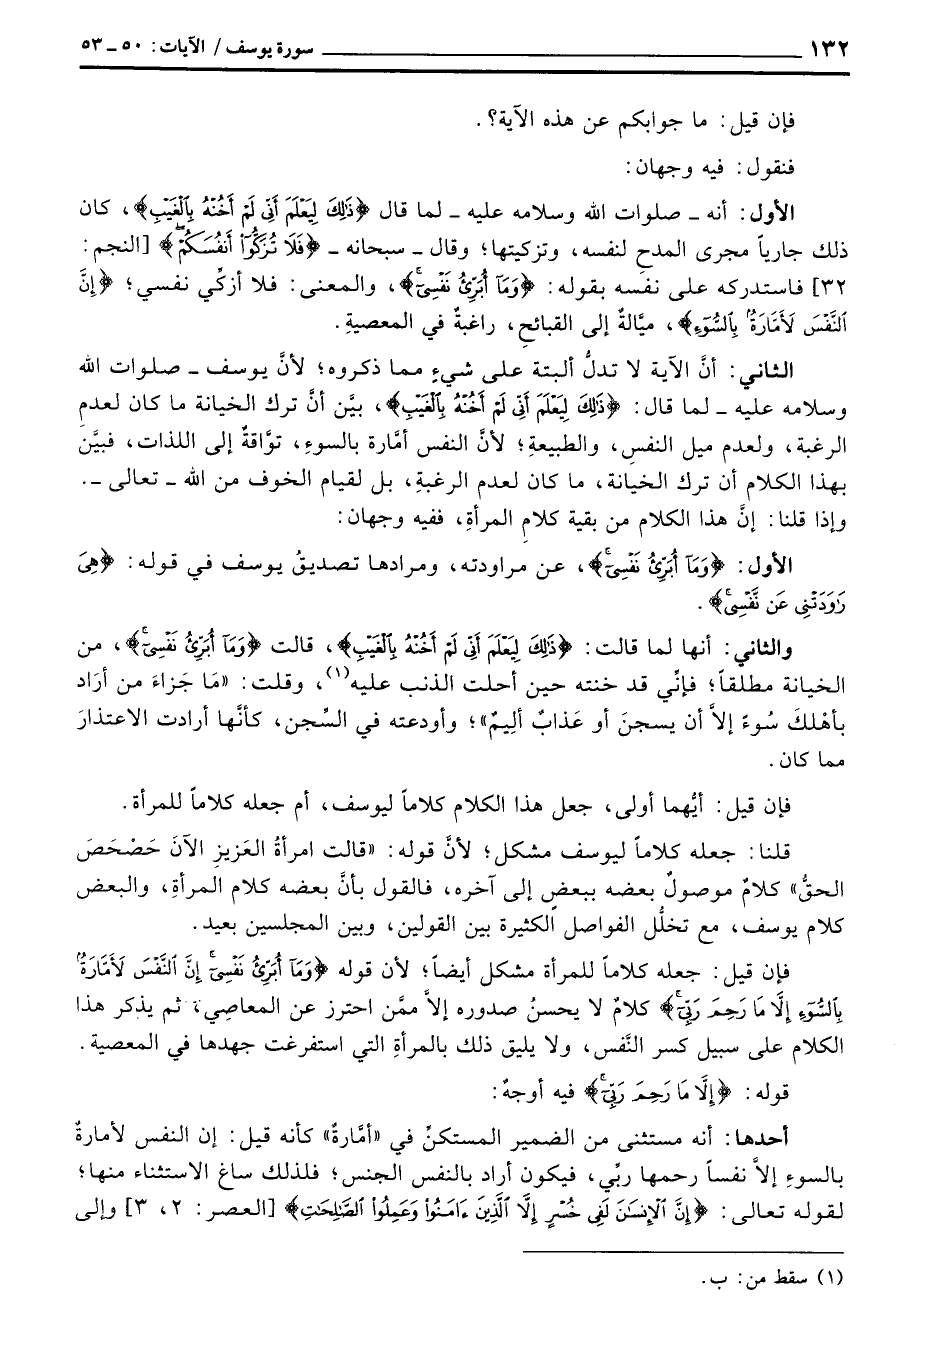 ١٣٢ ــــــــــــــــــــ سورة يوسف / الآيات: ٥٠ ـ ٥٣
فإن قيل: ما جوابكم عن هذه الآية؟.
فنقول: فيه وجهان:
الأول: أنه ـ صلوات الله وسلامه عليه ـ لما قال ﴿ذَٰلِكَ لِيَعْلَمَ أَنِّي لَمْ أَخُنْهُ بِالْغَيْبِ﴾، كان
ذلك جارياً مجرى المدح لنفسه، وتزكيتها؛ وقال ـ سبحانه ـ ﴿فَلَا تُزَكُّوٓا أَنفُسَكُمْ﴾ [النجم:
٣٢] فاستدركه على نفسه بقوله: ﴿وَمَآ أُبَرِّئُ نَفْسِيٓ﴾، والمعنى: فلا أزكِّي نفسي؛ ﴿إِنَّ
ٱلنَّفْسَ لَأَمَّارَةٌۢ بِٱلسُّوٓءِ﴾، ميَّالةٌ إلى القبائح، راغبةٌ في المعصيةِ.
الثاني: أنَّ الآية لا تدلُّ ألبتة على شيءٍ مما ذكروه؛ لأنَّ يوسف ـ صلوات الله
وسلامه عليه ـ لما قال: ﴿ذَٰلِكَ لِيَعْلَمَ أَنِّي لَمْ أَخُنْهُ بِٱلْغَيْبِ﴾، بيَّن أنَّ ترك الخيانة ما كان لعدم
الرغبة، ولعدم ميل النفسِ، والطبيعةِ؛ لأنَّ النفس أمَّارة بالسوءِ، توَّاقةٌ إلى اللذات، فبيَّن
بهذا الكلام أن ترك الخيانة، ما كان لعدم الرغبةِ، بل لقيام الخوف من الله ـ تعالى ـ.
وإذا قلنا: إنَّ هذا الكلام من بقية كلامِ المرأةِ، ففيه وجهان:
الأول: ﴿وَمَآ أُبَرِّئُ نَفْسِيٓ﴾، عن مراودته، ومرادها تصديقُ يوسف في قوله: ﴿هِيَ
رَٰوَدَتْنِي عَن نَّفْسِي﴾.
والثاني: أنها لما قالت: ﴿ذَٰلِكَ لِيَعْلَمَ أَنِّي لَمْ أَخُنْهُ بِٱلْغَيْبِ﴾، قالت ﴿وَمَآ أُبَرِّئُ نَفْسِيٓ﴾، من
الخيانة مطلقاً؛ فإنِّي قد خنته حين أحلت الذنب عليه(١)، وقلت: «مَا جَزاءَ من أرَاد
بأهْلكَ سُوءً إلاَّ أن يسجنَ أو عَذابٌ أليمٌ»؛ وأودعته في السِّجن، كأنَّها أرادت الاعتذارَ
مما كان.
فإن قيل: أيُّهما أولى، جعل هذا الكلام كلاماً ليوسف، أم جعله كلاماً للمرأة.
قلنا: جعله كلاماً ليوسف مشكل؛ لأنَّ قوله: «قالت امرأةُ العَزيزِ الآنَ حَصْحَصَ
الحقُّ» كلامٌ موصولٌ بعضه ببعضٍ إلى آخره، فالقول بأنَّ بعضه كلام المرأةِ، والبعض
كلام يوسف، مع تخلُّل الفواصل الكثيرة بين القولين، وبين المجلسين بعيد.
فإن قيل: جعله كلاماً للمرأة مشكل أيضاً؛ لأن قوله ﴿وَمَآ أُبَرِّئُ نَفْسِيٓ إِنَّ ٱلنَّفْسَ لَأَمَّارَةٌۢ
بِٱلسُّوٓءِ إِلَّا مَا رَحِمَ رَبِّيٓ﴾ كلامٌ لا يحسنُ صدوره إلاَّ ممَّن احترز عن المعاصِي، ثم يذكر هذا
الكلام على سبيل كسر النَّفس، ولا يليق ذلك بالمرأةِ التي استفرغت جهدها في المعصية.
قوله: ﴿إِلَّا مَا رَحِمَ رَبِّيٓ﴾ فيه أوجهٌ:
أحدها: أنه مستثنى من الضمير المستكنِّ في «أمَّارةٌ» كأنه قيل: إن النفس لأمارةٌ
بالسوءِ إلاَّ نفساً رحمها ربِّي، فيكون أراد بالنفس الجنس؛ فلذلك ساغ الاستثناء منها؛
لقوله تعالى: ﴿إِنَّ ٱلْإِنسَٰنَ لَفِي خُسْرٍ إِلَّا ٱلَّذِينَ ءَامَنُوا وَعَمِلُوا ٱلصَّٰلِحَٰتِ﴾ [العصر: ٢، ٣] وإلى
(١) سقط من: ب.